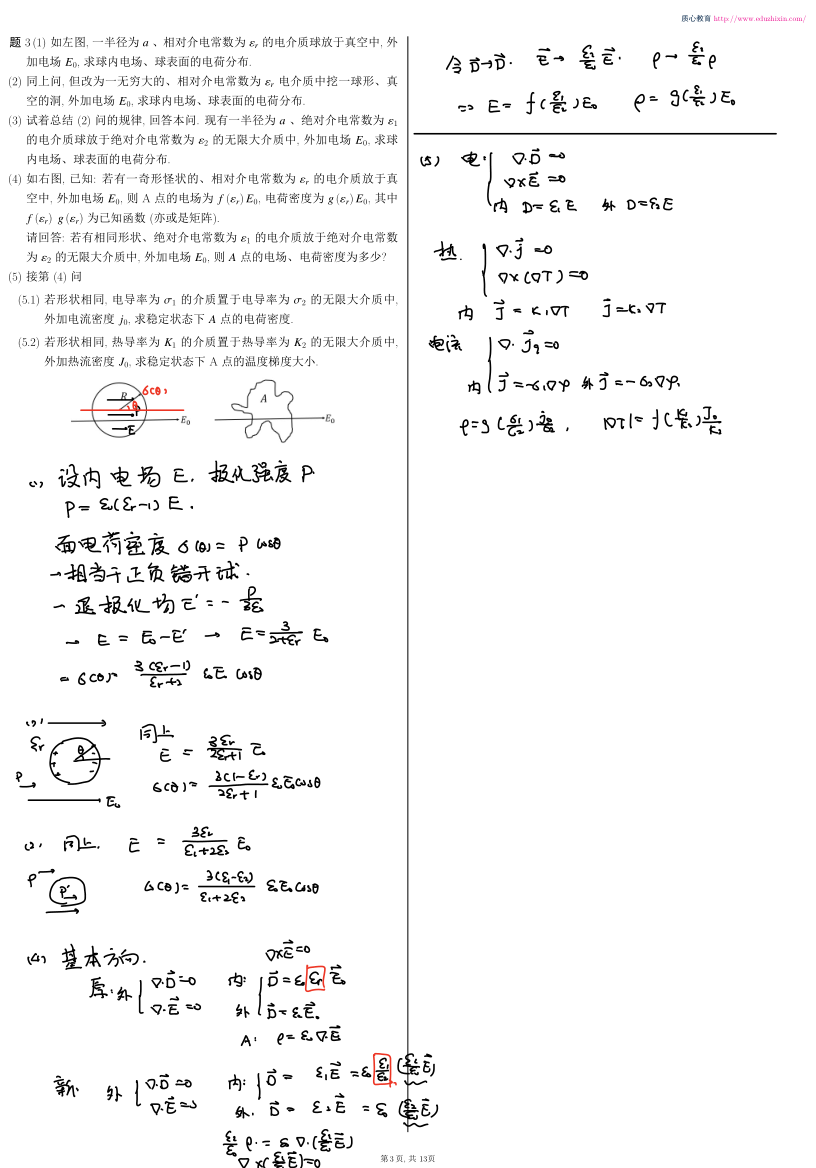 质心教育 http://www.eduzhixin.com/
题 3 (1) 如左图, 一半径为 a 、相对介电常数为 εr 的电介质球放于真空中, 外
加电场 E₀, 求球内电场、球表面的电荷分布.
(2) 同上问, 但改为一无穷大的、相对介电常数为 εr 电介质中挖一球形、真
空的洞, 外加电场 E₀, 求球内电场、球表面的电荷分布.
(3) 试着总结 (2) 问的规律, 回答本问. 现有一半径为 a 、绝对介电常数为 ε₁
的电介质球放于绝对介电常数为 ε₂ 的无限大介质中, 外加电场 E₀, 求球
内电场、球表面的电荷分布.
(4) 如右图, 已知: 若有一奇形怪状的、相对介电常数为 εr 的电介质放于真
空中, 外加电场 E₀, 则 A 点的电场为 f (εr) E₀, 电荷密度为 g (εr) E₀, 其中
f (εr) g (εr) 为已知函数 (亦或是矩阵).
请回答: 若有相同形状、绝对介电常数为 ε₁ 的电介质放于绝对介电常数
为 ε₂ 的无限大介质中, 外加电场 E₀, 则 A 点的电场、电荷密度为多少?
(5) 接第 (4) 问
(5.1) 若形状相同, 电导率为 σ₁ 的介质置于电导率为 σ₂ 的无限大介质中,
外加电流密度 j₀, 求稳定状态下 A 点的电荷密度.
(5.2) 若形状相同, 热导率为 K₁ 的介质置于热导率为 K₂ 的无限大介质中,
外加热流密度 J₀, 求稳定状态下 A 点的温度梯度大小.
R σ(θ) θ E₀ E
A E₀
(1) 设内电场 E, 极化强度 P
P = ε₀(εr-1) E.
面电荷密度 σ(θ) = P cosθ
→相当于正负错开球.
→ 退极化场 E' = - P/3ε₀
→ E = E₀-E' → E = 3/(2+εr) E₀
= σ(θ) = 3(εr-1)/(εr+2) ε₀E₀ cosθ
εr θ P E₀
同上
E = 3εr/(2εr+1) E₀
σ(θ) = 3(1-εr)/(2εr+1) ε₀E₀cosθ
(3) 同上. E = 3ε₂/(ε₁+2ε₂) E₀
P P' σ(θ) = 3(ε₁-ε₂)/(ε₁+2ε₂) ε₀E₀cosθ
(4) 基本方向. ∇×E=0
原: 外 ∇·D=0 内: D=ε₀ εr E₀
∇·E=0 外 D=ε₀E.
A: ρ=ε₀∇·E
新: 外 ∇·D=0 内: D = ε₁E = ε₀ ε₁/ε₂ (ε₂/ε₀ E)
∇·E=0 外. D = ε₂E = ε₀ (ε₂/ε₀ E)
ε₂/ε₀ ρ = ε₀ ∇·(ε₂/ε₀ E)
∇×(ε₂/ε₀ E)=0
令 D→D. E→ ε₂/ε₀ E. ρ→ ε₂/ε₀ ρ
⇒ E = f(ε₁/ε₂)E₀ ρ = g(ε₁/ε₂)E₀
(5) 电: ∇·D=0
∇×E=0
内 D=ε₁E 外 D=ε₂E
热. ∇·j=0
∇×(∇T)=0
内 J=K₁∇T J=K₂∇T
电流 ∇·j=0
内 J=-σ₁∇φ 外 J=-σ₂∇φ.
ρ=g(σ₁/σ₂) j₀/σ₂, |∇T|=f(K₁/K₂) J₀/K₂
第 3 页, 共 13页